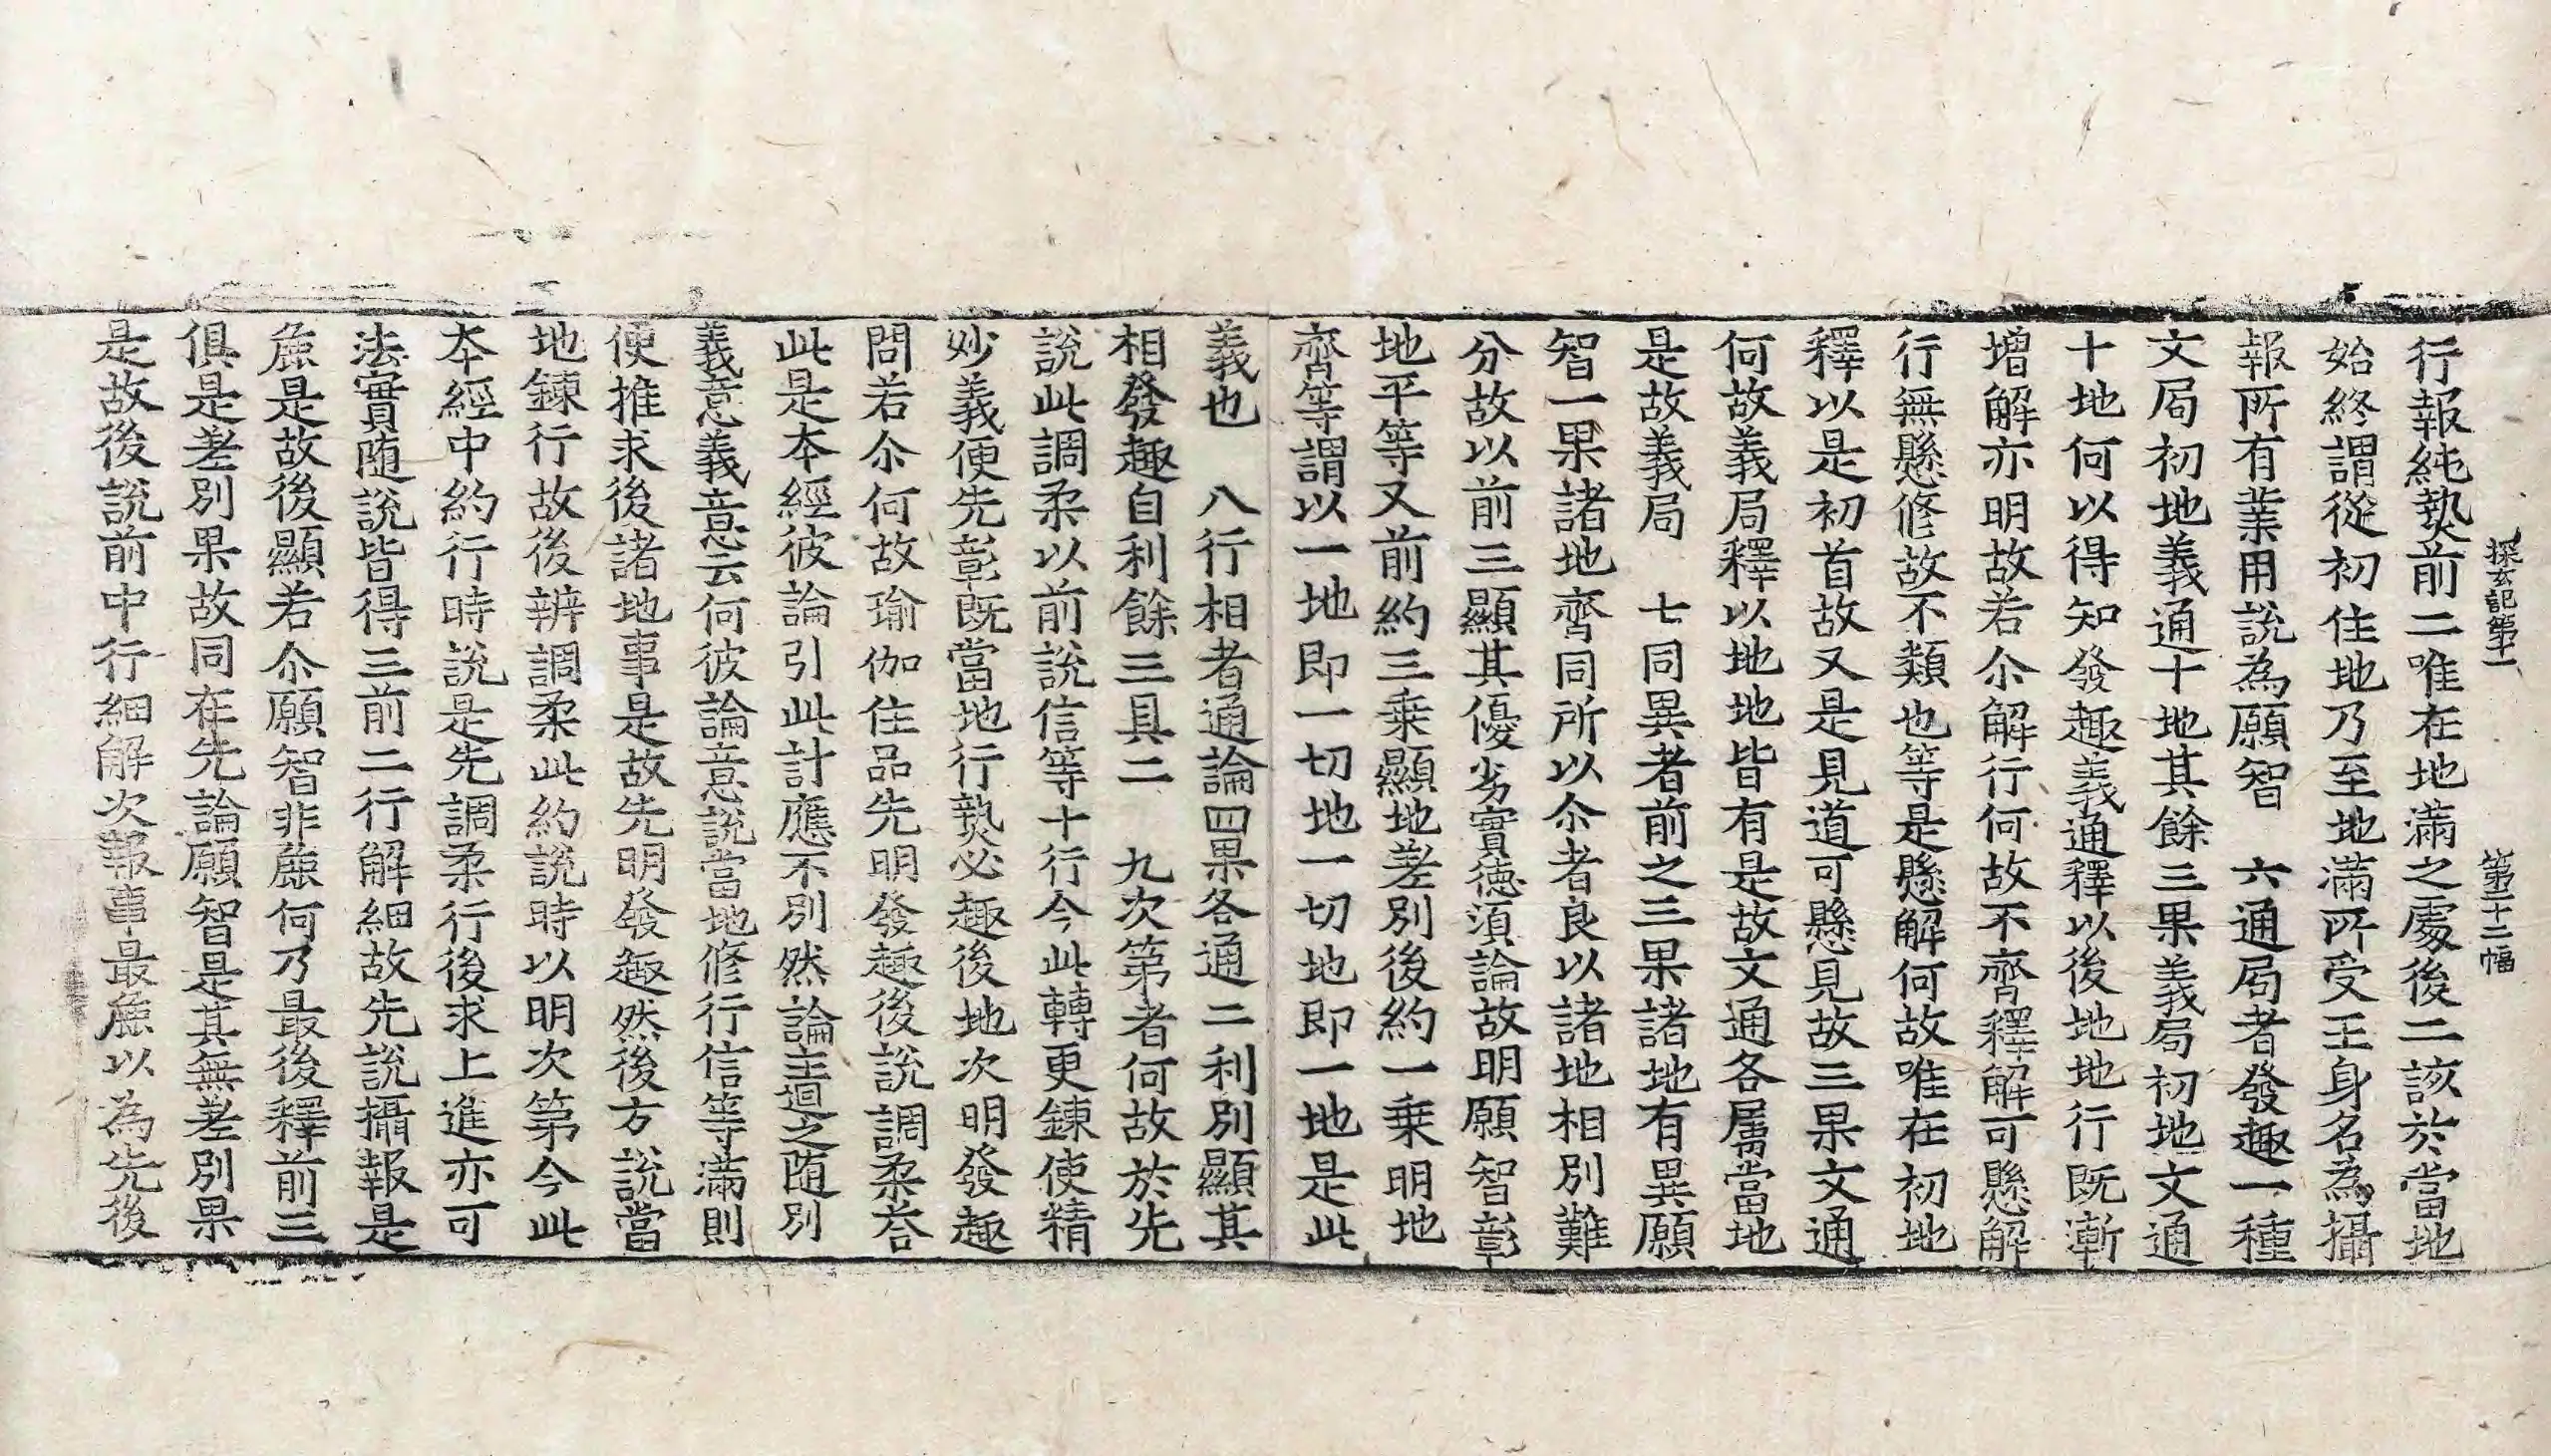 探玄記第十一　第二十二幅
行報純𤍠前二唯在地滿之處後二該於當地
始終謂從初住地乃至地滿所受王身名為攝
報所有業用說為願智　六通局者發趣一種
文局初地義通十地其餘三果義局初地文通
十地何以得知發趣義通釋以後地地行既漸
增解亦明故若尒解行何故不齊釋解可懸解
行無懸修故不類也等是懸解何故唯在初地
釋以是初首故又是見道可懸見故三果文通
何故義局釋以地地皆有是故文通各屬當地
是故義局　七同異者前之三果諸地有異願
智一果諸地齊同所以尒者良以諸地相別難
分故以前三顯其優劣實德湏論故明願智彰
地平等又前約三乗顯地差別後約一乗明地
齊等謂以一地即一切地一切地即一地是此
義也　八行相者通論四果各通二利別顯其
相發趣自利餘三具二　九次第者何故於先
說此調柔以前說信等十行今此轉更鍊使精
妙義便先彰既當地行𤍠必趣後地次明發趣
問若尒何故瑜伽住品先明發趣後說調柔荅
此是本經彼論引此計應不別然論主迴之随別
義意義意云何彼論意說當地修行信等滿則
便推求後諸地事是故先明發趣然後方說當
地鍊行故後辨調柔此約說時以明次第今此
本經中約行時說是先調柔行後求上進亦可
法實随說皆得三前二行解細故先說攝報是
麁是故後顯若尒願智非麁何乃最後釋前三
俱是差別果故同在先論願智是其無差別果
是故後說前中行細解次報事最麁以為先後